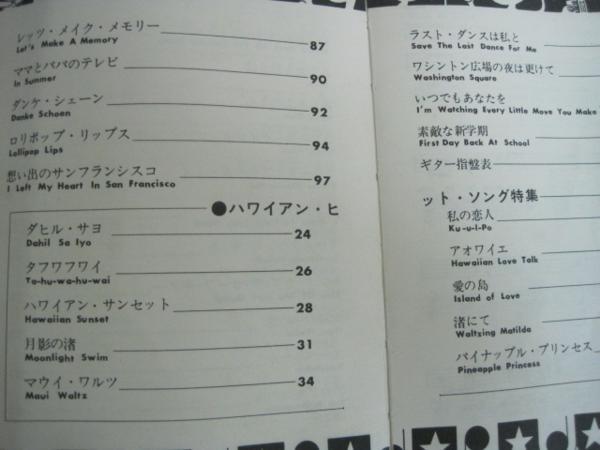 レッツ・メイク・メモリー
Let's Make A Memory
87
ママとパパのテレビ
In Summer
90
ダンケ・シェーン
Danke Schoen
92
ロリポップ・リップス
Lollipop Lips
94
想い出のサンフランシスコ
I Left My Heart In San Francisco
97
●ハワイアン・ヒ
ダヒル・サヨ
Dahil Sa Iyo
24
タフワフワイ
Ta-hu-wa-hu-wai
26
ハワイアン・サンセット
Hawaiian Sunset
28
月影の渚
Moonlight Swim
31
マウイ・ワルツ
Maui Waltz
34
ラスト・ダンスは私と
Save The Last Dance For Me
ワシントン広場の夜は更けて
Washington Square
いつでもあなたを
I'm Watching Every Little Move You Make
素敵な新学期
First Day Back At School
ギター指盤表
ット・ソング特集
私の恋人
Ku-u-I-Po
アオワイエ
Hawaiian Love Talk
愛の島
Island of Love
渚にて
Waltzing Matilda
パイナップル・プリンセス
Pineapple Princess